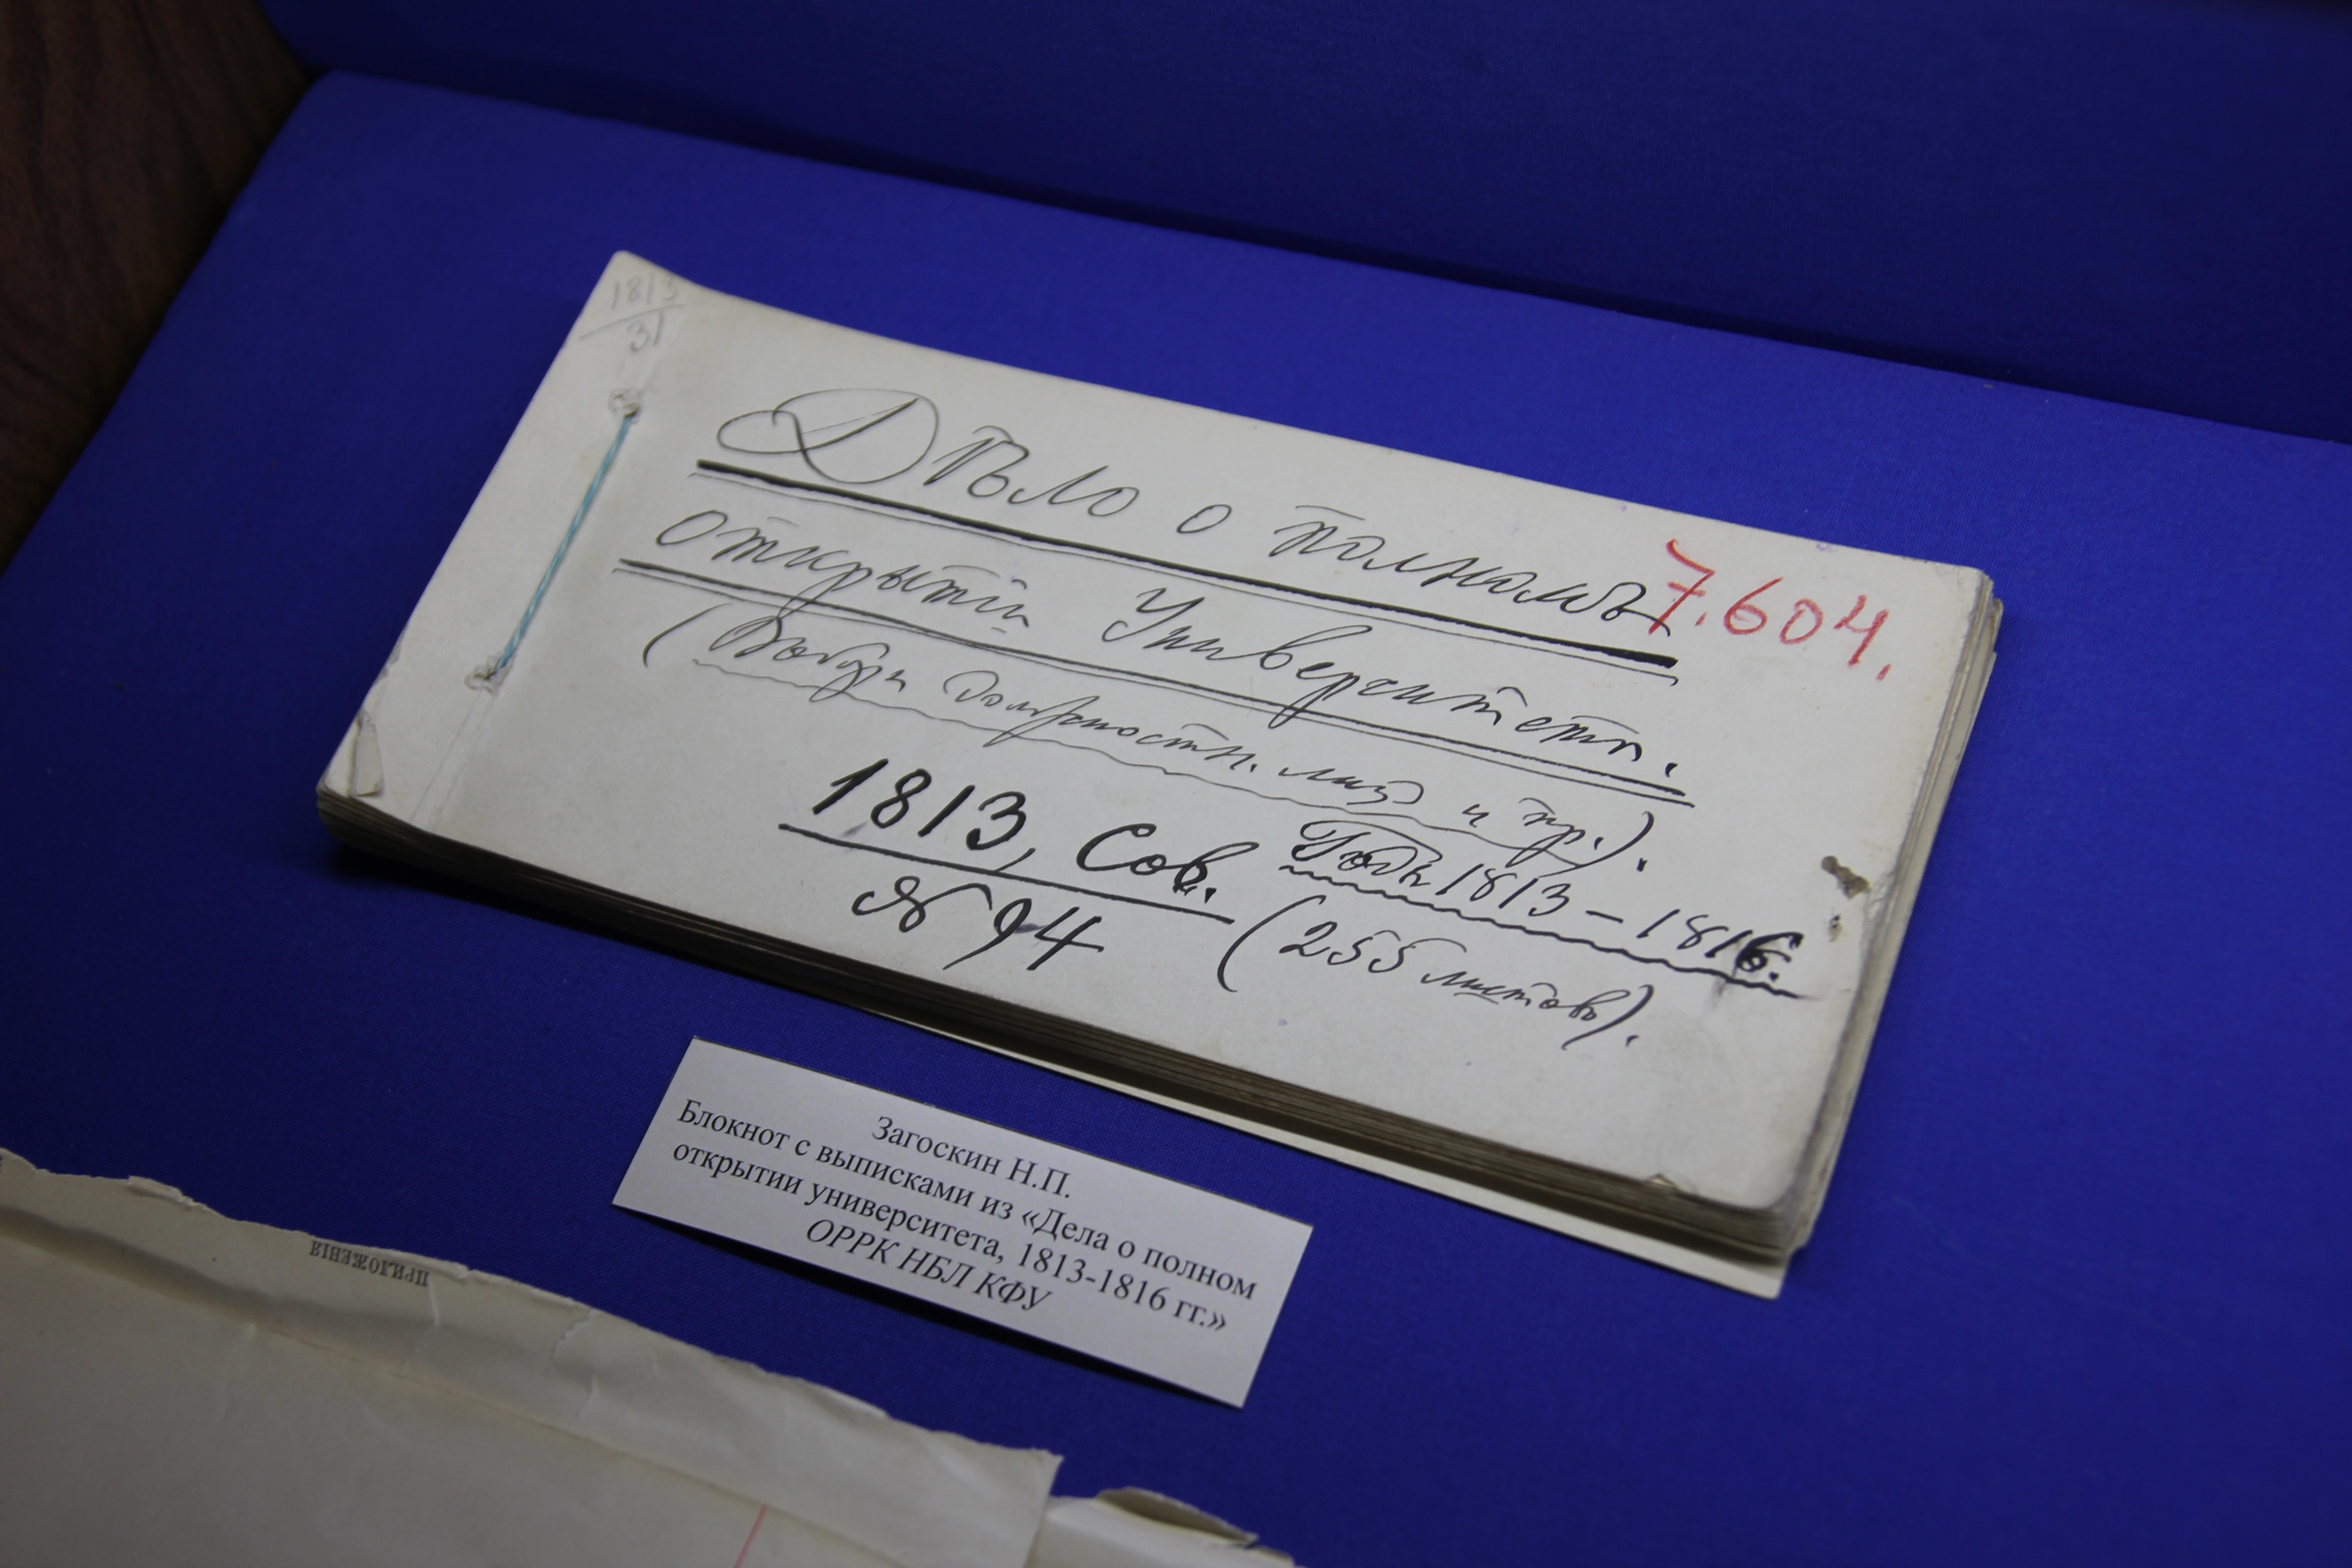 1813
31
Дѣло о полномъ
7.604.
открытіи Университета.
(Выборы должностн. лицъ и пр.).
1813, Сов.
№ 94
Годы 1813 – 1816.
(255 листовъ).
Загоскин Н.П.
Блокнот с выписками из «Дела о полном
открытии университета, 1813-1816 гг.»
ОРРК НБЛ КФУ
ПРИЛОЖЕНІЯ